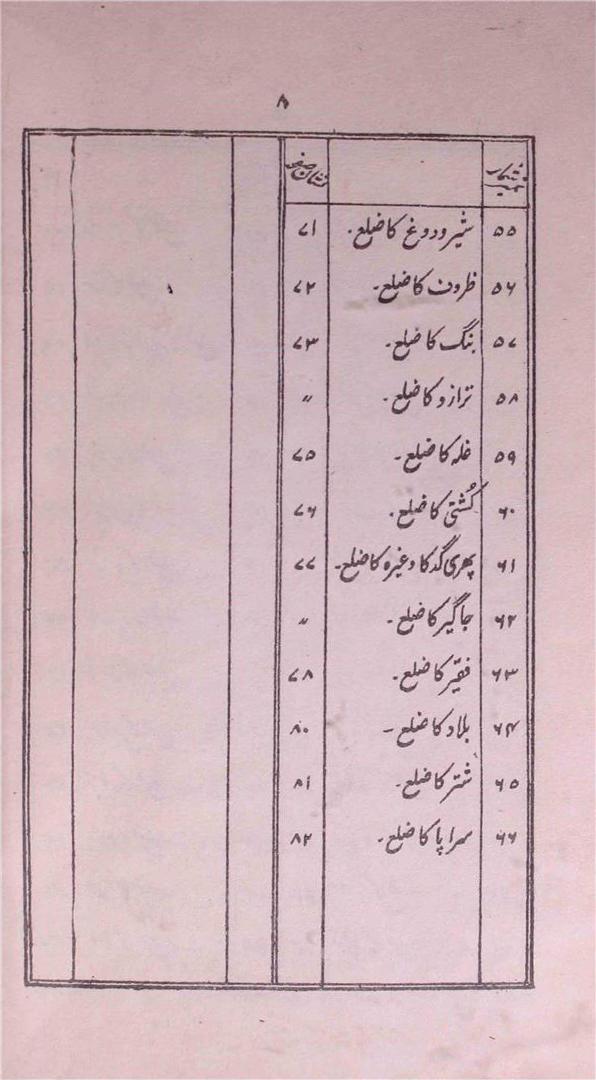 ۸
نمبر شمار نشان صفحہ
۵۵ شیر و دوغ کا ضلع۔ ۷۱
۵۶ ظروف کا ضلع۔ ۷۲
۵۷ بنگ کا ضلع۔ ۷۳
۵۸ ترازو کا ضلع۔ 〃
۵۹ غلہ کا ضلع۔ ۷۵
۶۰ کُشتی کا ضلع۔ ۷۶
۶۱ پھری گدکا وغیرہ کا ضلع۔ ۷۷
۶۲ جاگیر کا ضلع۔ 〃
۶۳ فقیر کا ضلع۔ ۷۸
۶۴ بلاد کا ضلع۔ ۸۰
۶۵ شتر کا ضلع۔ ۸۱
۶۶ سراپا کا ضلع۔ ۸۲